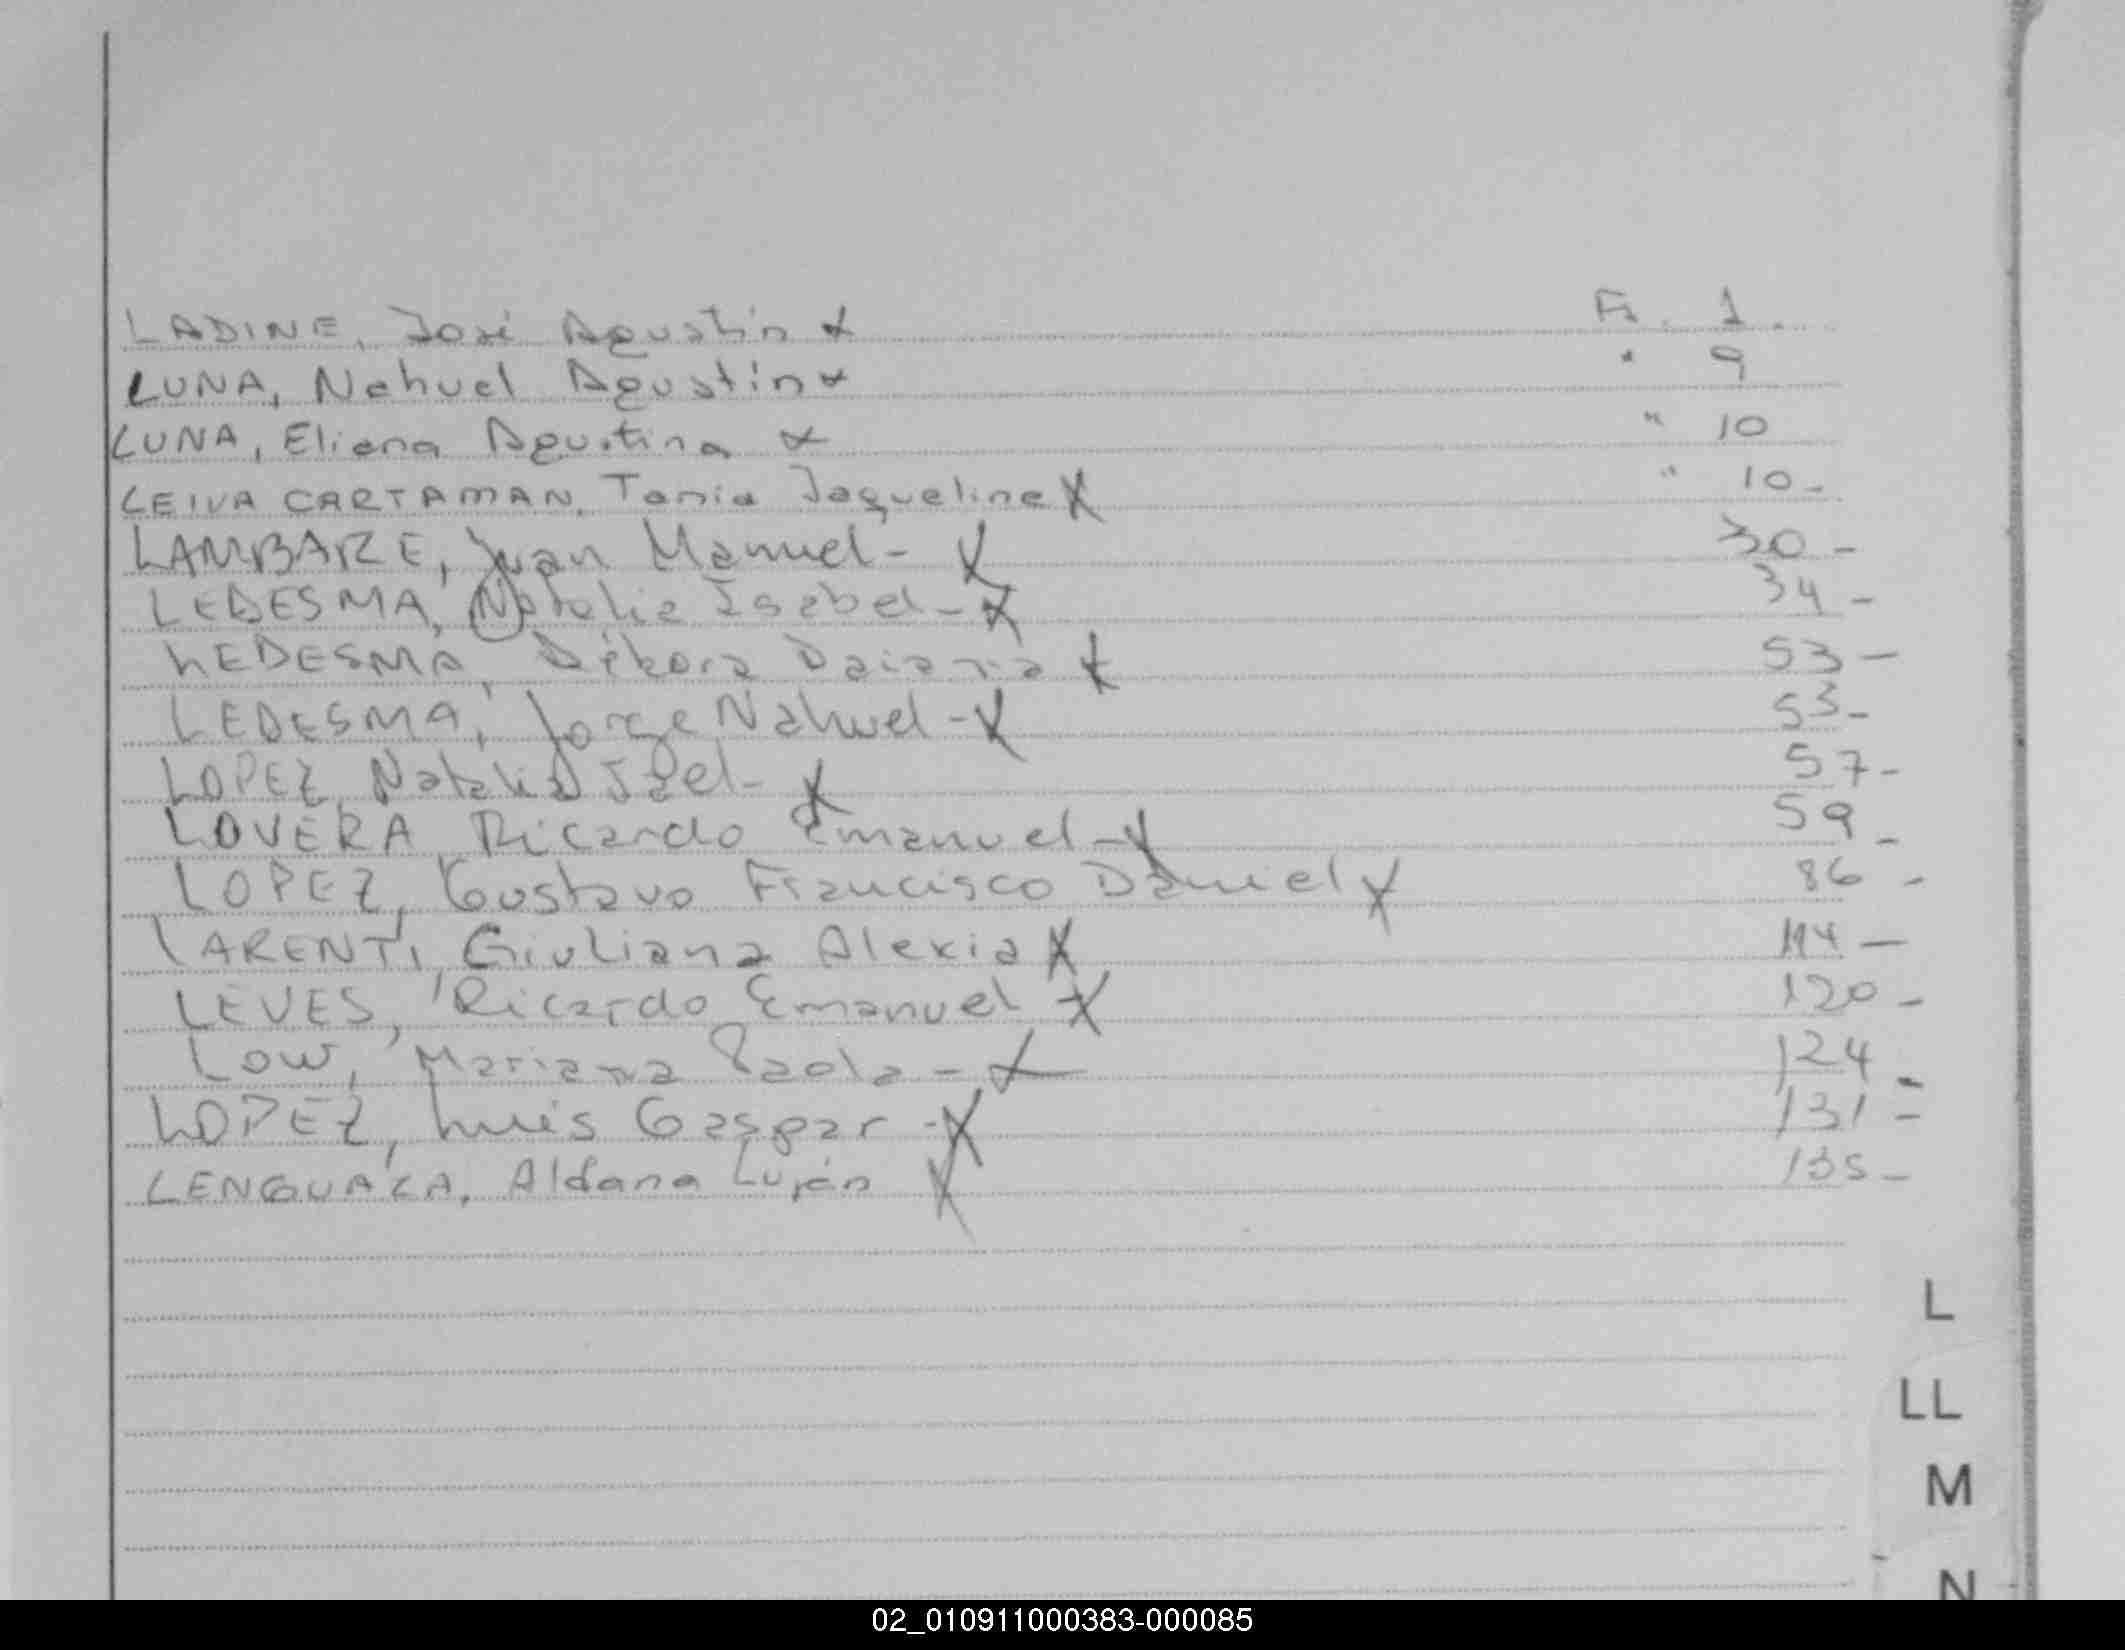 LADINE, José Agustín x F. 1.
LUNA, Nahuel Agustín x " 9
LUNA, Eliana Agustina x " 10
LEIVA CARTAMAN, Tania Jaqueline X " 10-
LAMBARE, Juan Manuel- X 30-
LEDESMA, Natalia Isabel- X 34-
LEDESMA, Débora Daiana X 53-
LEDESMA, Jorge Nahuel- X 53-
LOPEZ, Natalia Itel- X 57-
LOVERA, Ricardo Emanuel- X 59-
LOPEZ, Gustavo Francisco Daniel X 86-
LARENTI, Giuliana Alexia X 114-
LEVES, Ricardo Emanuel X 120-
LOW, Mariana Paola- X 124-
LOPEZ, Luis Gaspar- X 131-
LENGUAZA, Aldana Luján X 135-
L
LL
M
N
02_010911000383-000085